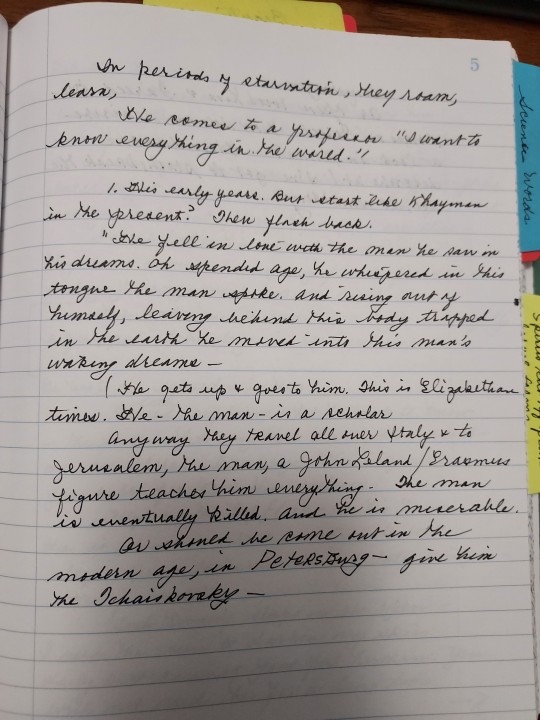 5
In periods of starvation, they roam,
learn,
He comes to a professor "I want to
know everything in the world."
1. His early years. But start like Khayman
in the present? Then flash back.
"He fell in love with the man he saw in
his dreams. Oh spendid age, he whispered in this
tongue the man spoke. And rising out of
himself, leaving behind this body trapped
in the earth he moved into this man's
waking dreams —
(He gets up & goes to him. This is Elizabethan
times. He - the man - is a scholar
Anyway they travel all over Italy & to
Jerusalem, the man, a John Leland/Erasmus
figure teaches him everything. The man
is eventually killed. And he is miserable.
Or should he come out in the
modern age, in Petersburg — give him
the Tchaiskovsky —
Science Words